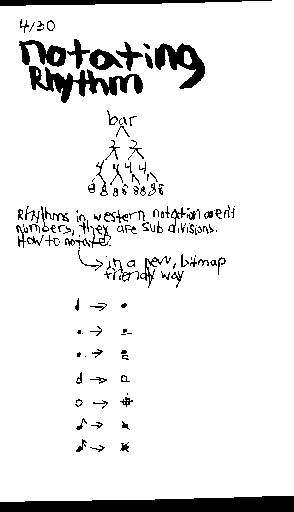 4/30
notating
Rhythm
bar
2 2
4 4 4 4
8 8 8 8 8 8 8 8
Rhythms in western notation aren't
numbers, they are sub divisions.
How to notate?
in a new, bitmap
friendly way